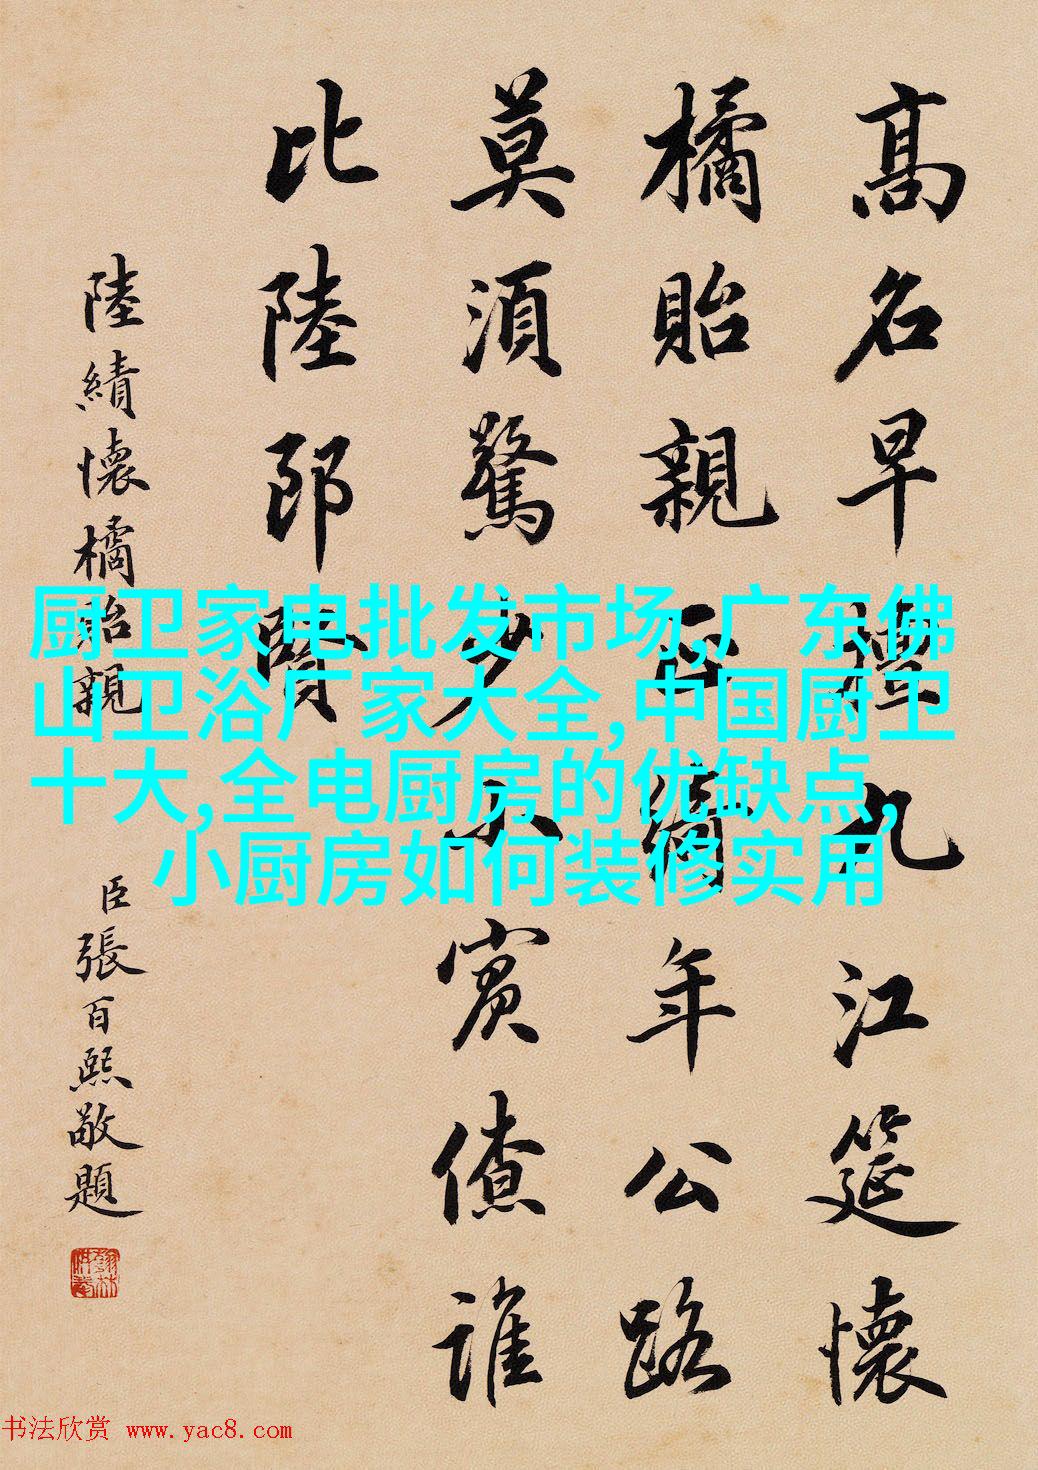 高名早擅九江筵懷
橘貽親正綺年公路
莫須驚少小賓僚誰
比陸郎賢
陸績懷橘貽親
臣張百熙敬題
厨卫家电批发市场,广东佛
山卫浴厂家大全,中国厨卫
十大,全电厨房的优缺点,
小厨房如何装修实用
书法欣赏 www.yac8.com